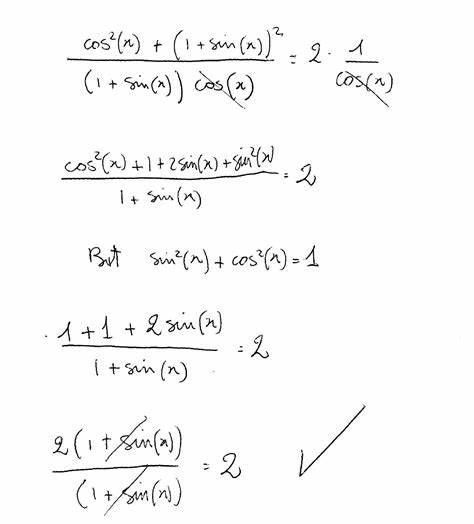 cos²(x) + (1 + sin(x))² / (1 + sin(x)) cos(x) = 2 · 1 / cos(x)
cos²(x) + 1 + 2 sin(x) + sin²(x) / 1 + sin(x) = 2
But sin²(x) + cos²(x) = 1
1 + 1 + 2 sin(x) / 1 + sin(x) = 2
2 (1 + sin(x)) / (1 + sin(x)) = 2 ✓